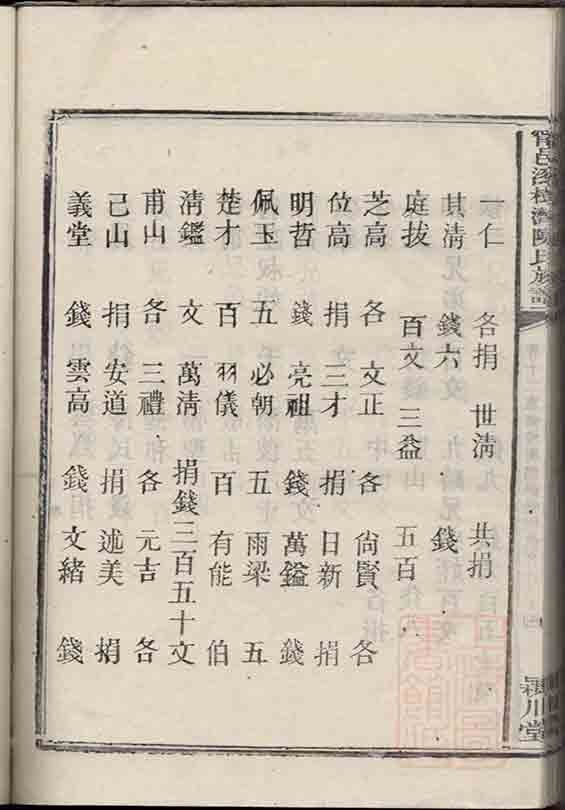 陳氏族譜
潁川堂
一仁 各捐 世淸 共捐
其淸 錢六 錢
庭拔 百文 三益 五百
芝高 各 文正 各 尙賢 各
位高 捐 三才 捐 日新 捐
明哲 錢 亮祖 錢 萬鎰 錢
佩玉 五 必朝 五 雨梁 五
楚才 百 羽儀 百 有能 伯
淸鑑 文 萬淸 捐錢三百五十文
甫山 各 三禮 各 元吉 各
己山 捐 安道 捐 述美 捐
義堂 錢 雲高 錢 文緒 錢